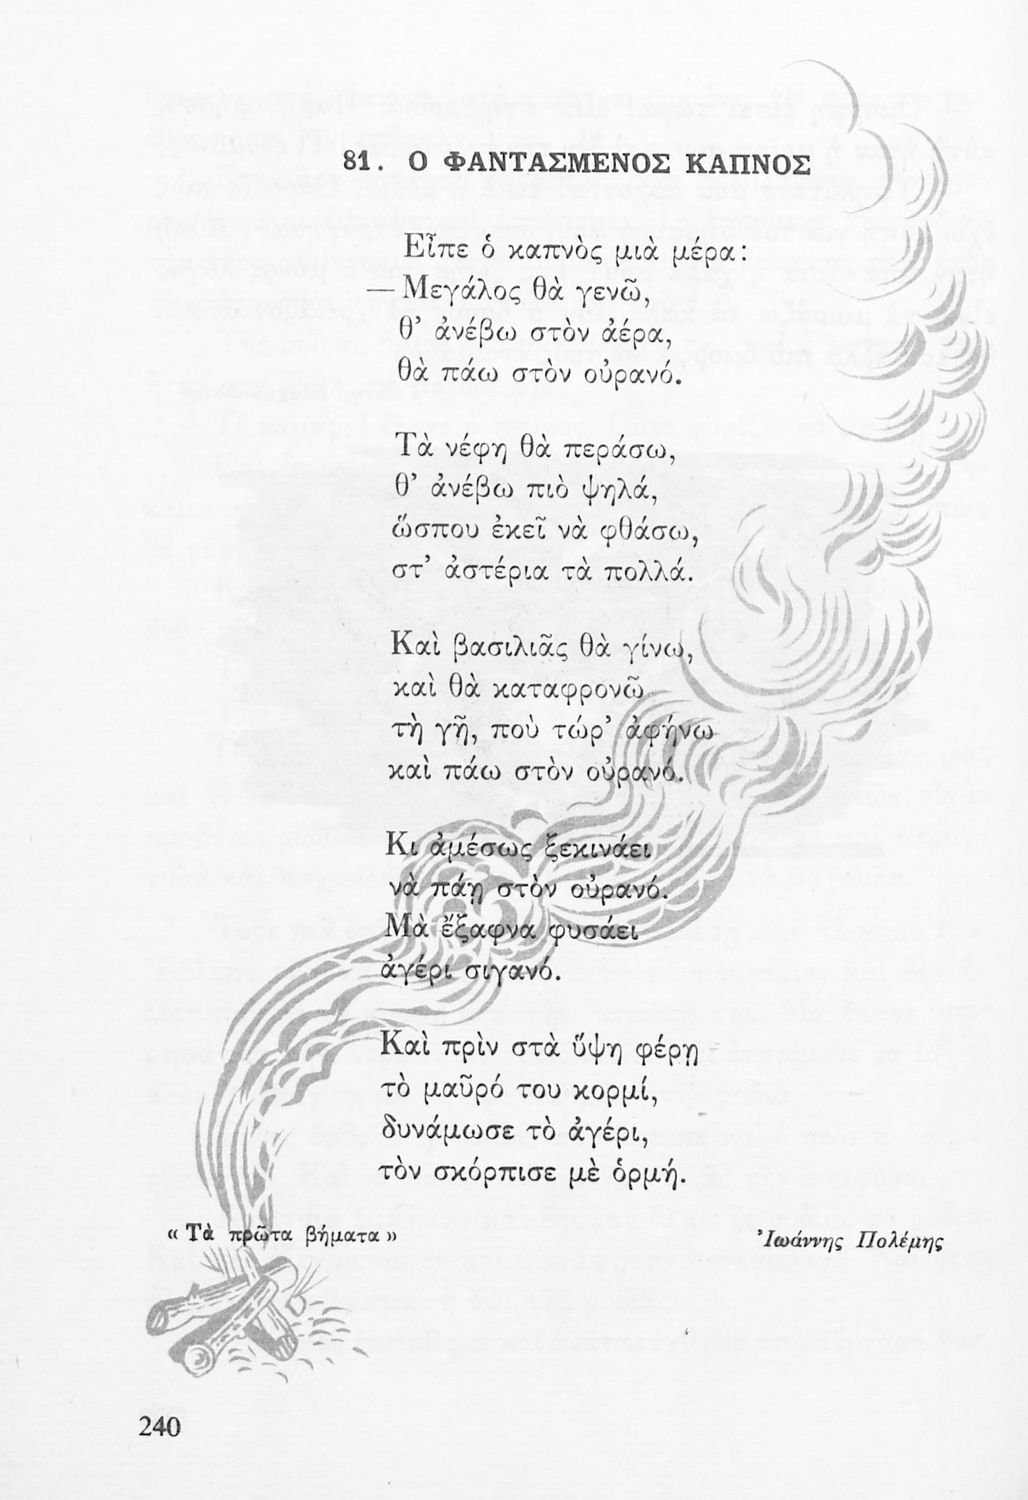 81. Ο ΦΑΝΤΑΣΜΕΝΟΣ ΚΑΠΝΟΣ
Εἶπε ὁ καπνὸς μιὰ μέρα:
— Μεγάλος θὰ γενῶ,
θ’ ἀνέβω στὸν ἀέρα,
θὰ πάω στὸν οὐρανό.
Τὰ νέφη θὰ περάσω,
θ’ ἀνέβω πιὸ ψηλά,
ὥσπου ἐκεῖ νὰ φθάσω,
στ’ ἀστέρια τὰ πολλά.
Καὶ βασιλιᾶς θὰ γίνω,
καὶ θὰ καταφρονῶ
τὴ γῆ, ποὺ τώρ’ ἀφήνω
καὶ πάω στὸν οὐρανό.
Κι ἀμέσως ξεκινάει
νὰ πάῃ στὸν οὐρανό.
Μὰ ἔξαφνα φυσάει
ἀγέρι σιγανό.
Καὶ πρὶν στὰ ὕψη φέρῃ
τὸ μαῦρό του κορμί,
δυνάμωσε τὸ ἀγέρι,
τὸν σκόρπισε μὲ ὁρμή.
« Τὰ πρῶτα βήματα » Ἰωάννης Πολέμης
240